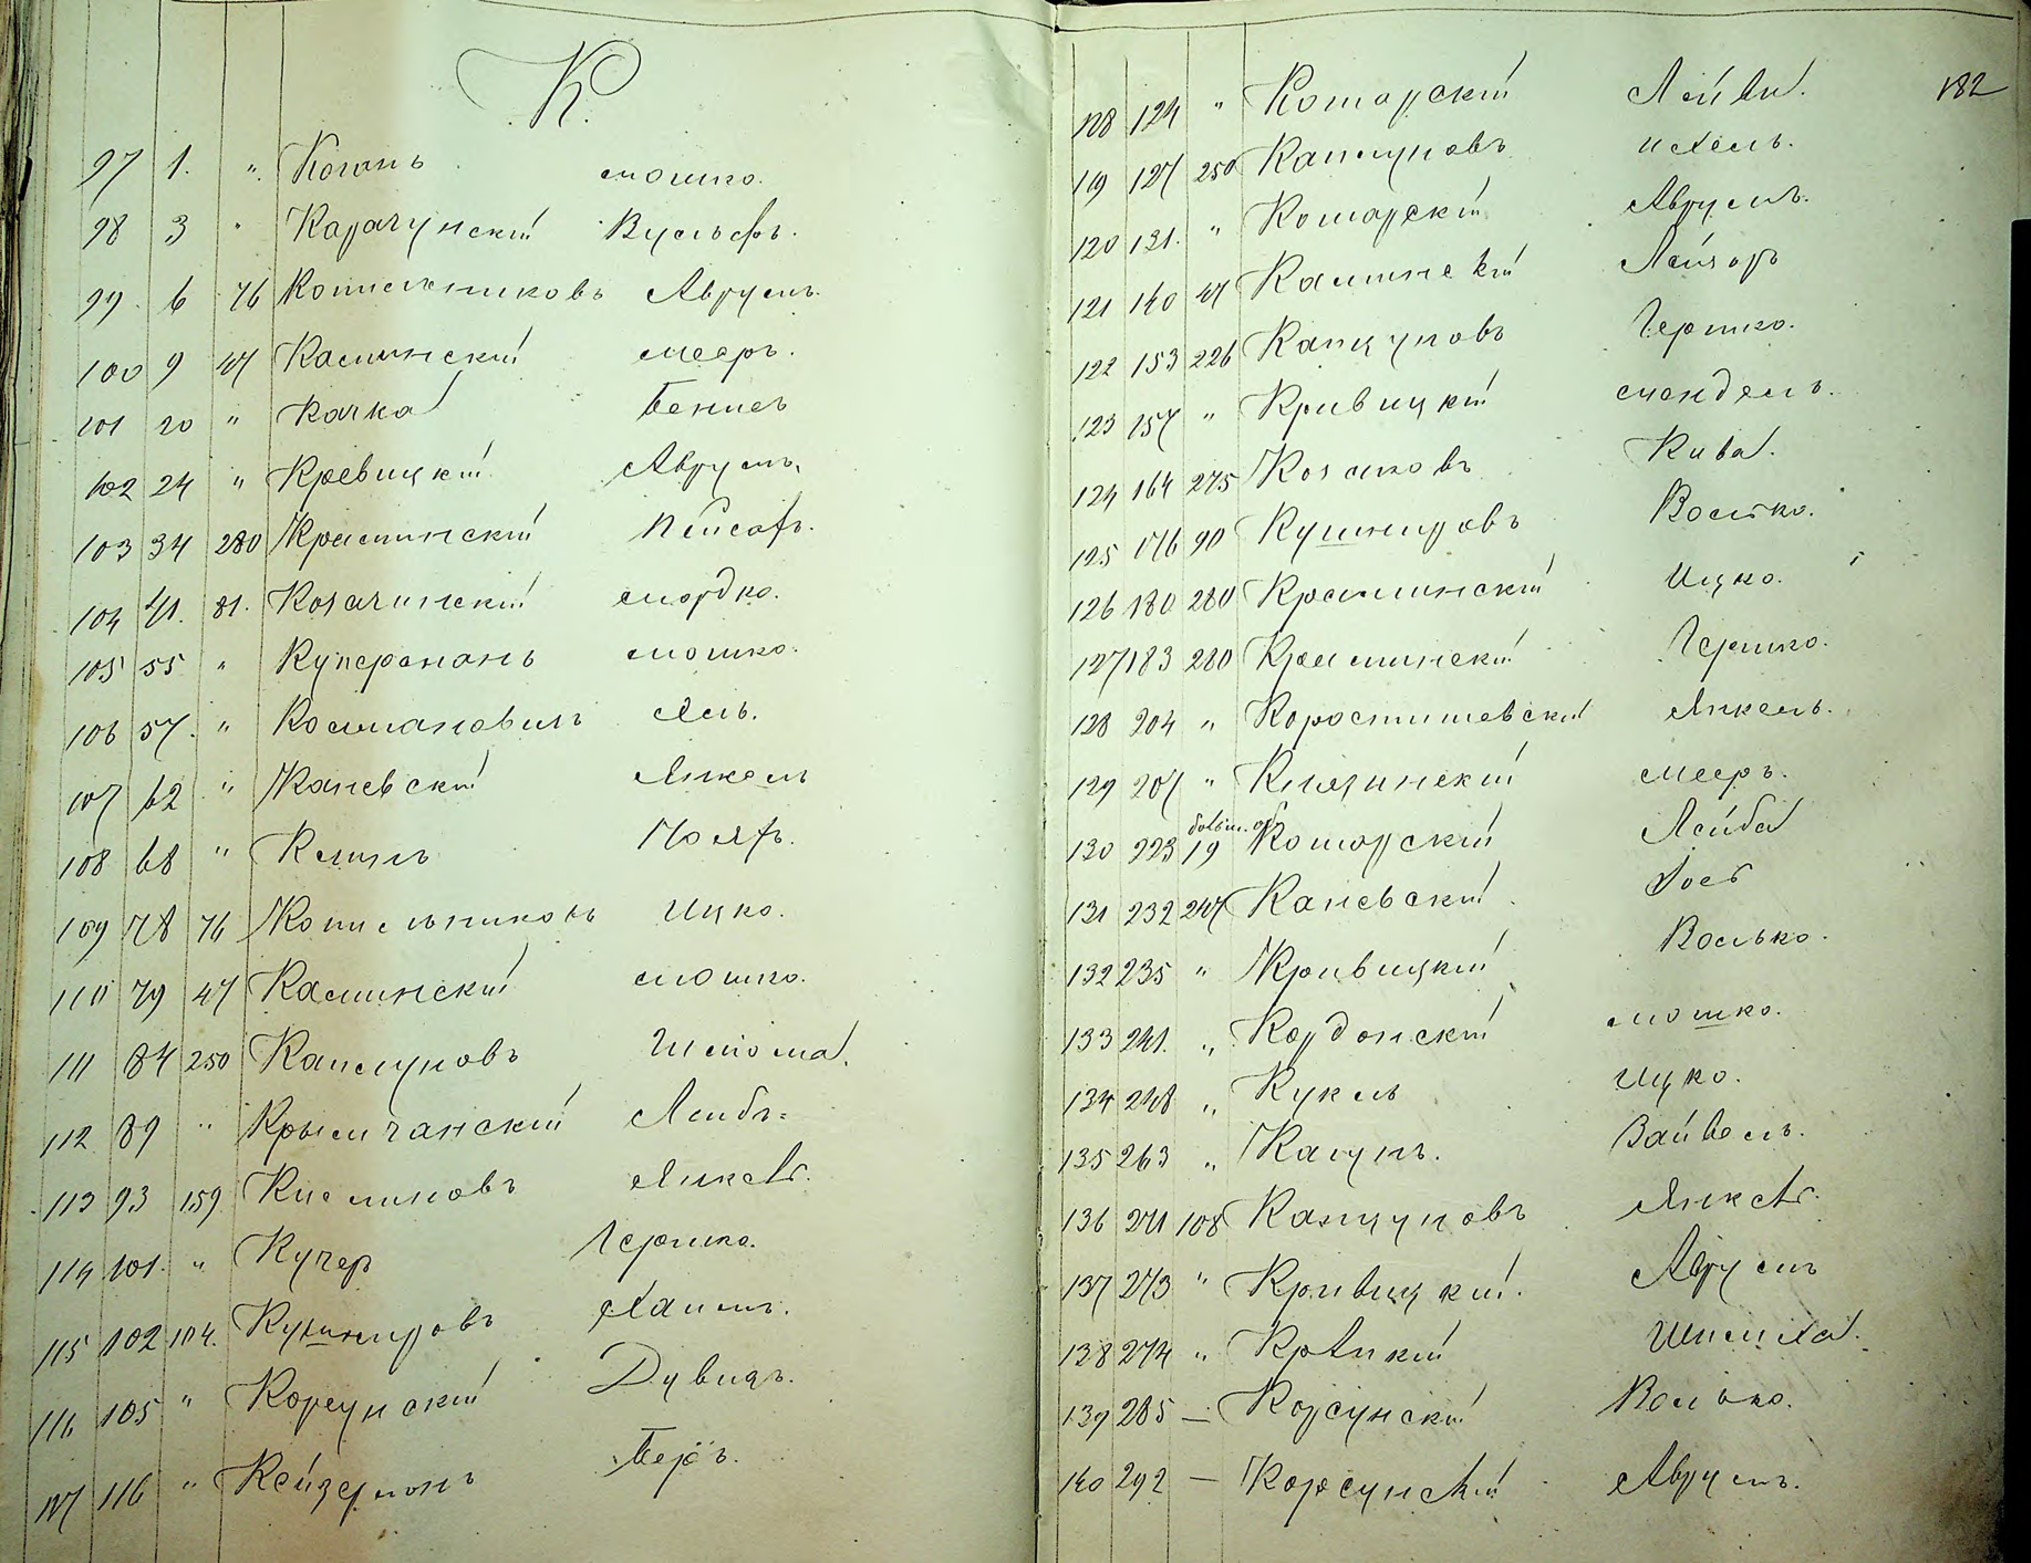 К.
97 1. ". Коганъ мошко.
98 3 " Карачунскій Вульфъ.
99. 6 76 Котельниковъ Аврумъ.
100 9 47 Каминскій мееръ.
101 20 " Качка Бенись
102 24 " Кревицкій Аврумъ.
103 34 280 Краминскій Пейсахъ.
104 41. 81. Козачинскій мордко.
105 55 " Куперманъ мошко.
106 57. " Колмановичъ
107 62 " Каневскій Янкель
108 68 "
109 78 76 Котельниковъ Ицко.
110 79 47 Каминскій мошко.
111 84 250 Капмуновъ Шлема.
112 89 " Крымчанскій Лейбъ.
113 93 159 Кислиновъ Янкель.
114 101. " Кучеръ Гершко.
115 102 104. Кушнировъ Хаимъ.
116 105 " Корсунскій Дувидъ.
117 116 " Кейзерманъ Беръ.
182
118 124 " Комарскій Лейви.
119 127 250 Капмуновъ Ихель.
120 131. " Комарскій Аврумъ.
121 140 47 Каминскій Лейзоръ
122 153 226 Капцуновъ Гершко.
123 157 " Кривицкій мендель.
124 164 275 Козаковъ Кива.
125 176 90 Кушнировъ Волько.
126 180 280 Краминскій Ицко.
127 183 280 Краминскій Гершко.
128 204 " Коростишевскій Янкель.
129 207 " Княжинскій мееръ.
130 223 19 Комарскій Лейба
131 232 247 Каневскій Іось
132 235 " Кривицкій Волько.
133 241. " Кордонскій мошко.
134 248 " Кукель Ицко.
135 263 " Кацунъ. Вайвель.
136 271 108 Капцуновъ Янкель.
137 273 " Кривицкій. Аврумъ
138 274 " Шмилха.
139 285 — Корсунскій Волько.
140 292 — Корсунскій Аврумъ.